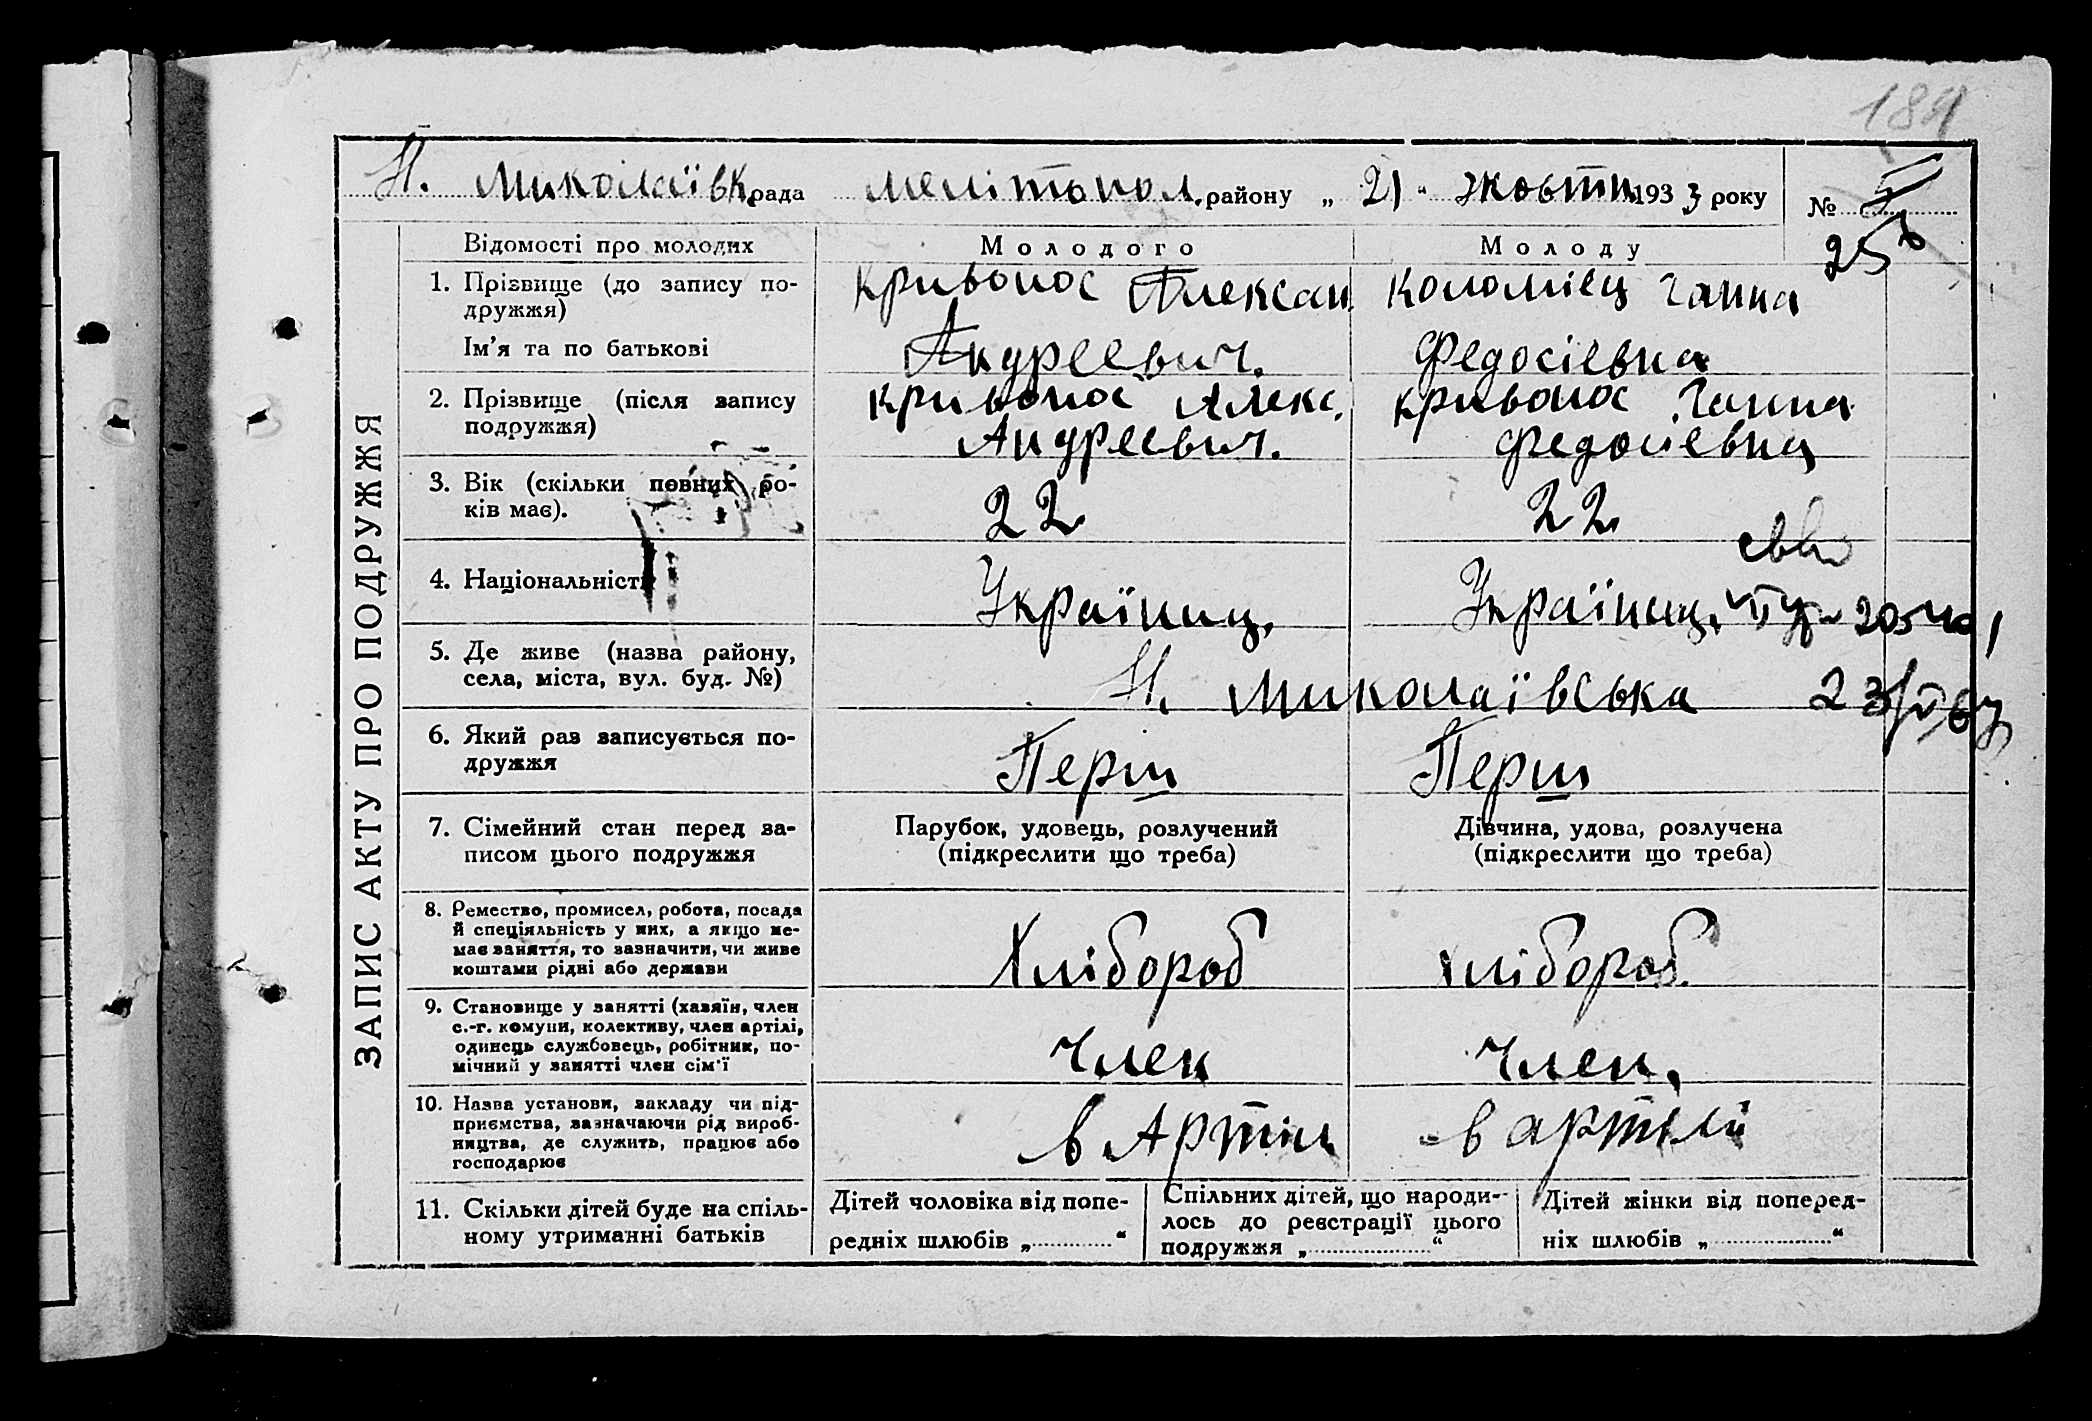 189
Н. Миколаївк рада мелітопол. району „ 21 " жовтн 1933 року №
25
ЗАПИС АКТУ ПРО ПОДРУЖЖЯ
Відомості про молодих
Молодого
Молоду
1. Прізвище (до запису по-
дружжя)
Ім'я та по батькові
кривонос Алексан.
Андреевич.
коломіец Ганна
Федосіевна
2. Прізвище (після запису
подружжя)
кривонос Алекс.
Андреевич.
кривонос Ганна
федосіевна
3. Вік (скільки повних ро-
ків має).
22
22
4. Національність
Українец.
Українец.
5. Де живе (назва району,
села, міста, вул. буд. №)
Н. Миколаївська
6. Який раз записується по-
дружжя
Перш
Перш
7. Сімейний стан перед за-
писом цього подружжя
Парубок, удовець, розлучений
(підкреслити що треба)
Дівчина, удова, розлучена
(підкреслити що треба)
8. Ремество, промисел, робота, посада
й спеціяльність у них, а якщо не-
має заняття, то зазначити, чи живе
коштами рідні або держави
Хлібороб
хлібороб.
9. Становище у занятті (хазяїн, член
с.-г. комуни, колективу, член артілі,
одинець службовець, робітник, по-
мічний у занятті член сім'ї
Член
Член,
10. Назва установи, закладу чи під-
приємства, зазначаючи рід вироб-
ництва, де служить, працює або
господарює
в Артіли
в артели
11. Скільки дітей буде на спіль-
ному утриманні батьків
Дітей чоловіка від попе-
редніх шлюбів „ "
Спільних дітей, що народи-
лось до реєстрації цього
подружжя „ "
Дітей жінки від поперед-
ніх шлюбів „ "